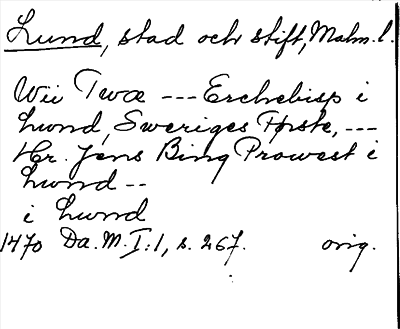 Lund, stad och stift, Malm. l.
Wii Twæ --- Erchebisp i
Lwnd, Sweriges Første, ---
Hr. Jens Bing Prowest i
Lwnd --
i Lund
1470 Da. M. I:1, s. 267. orig.